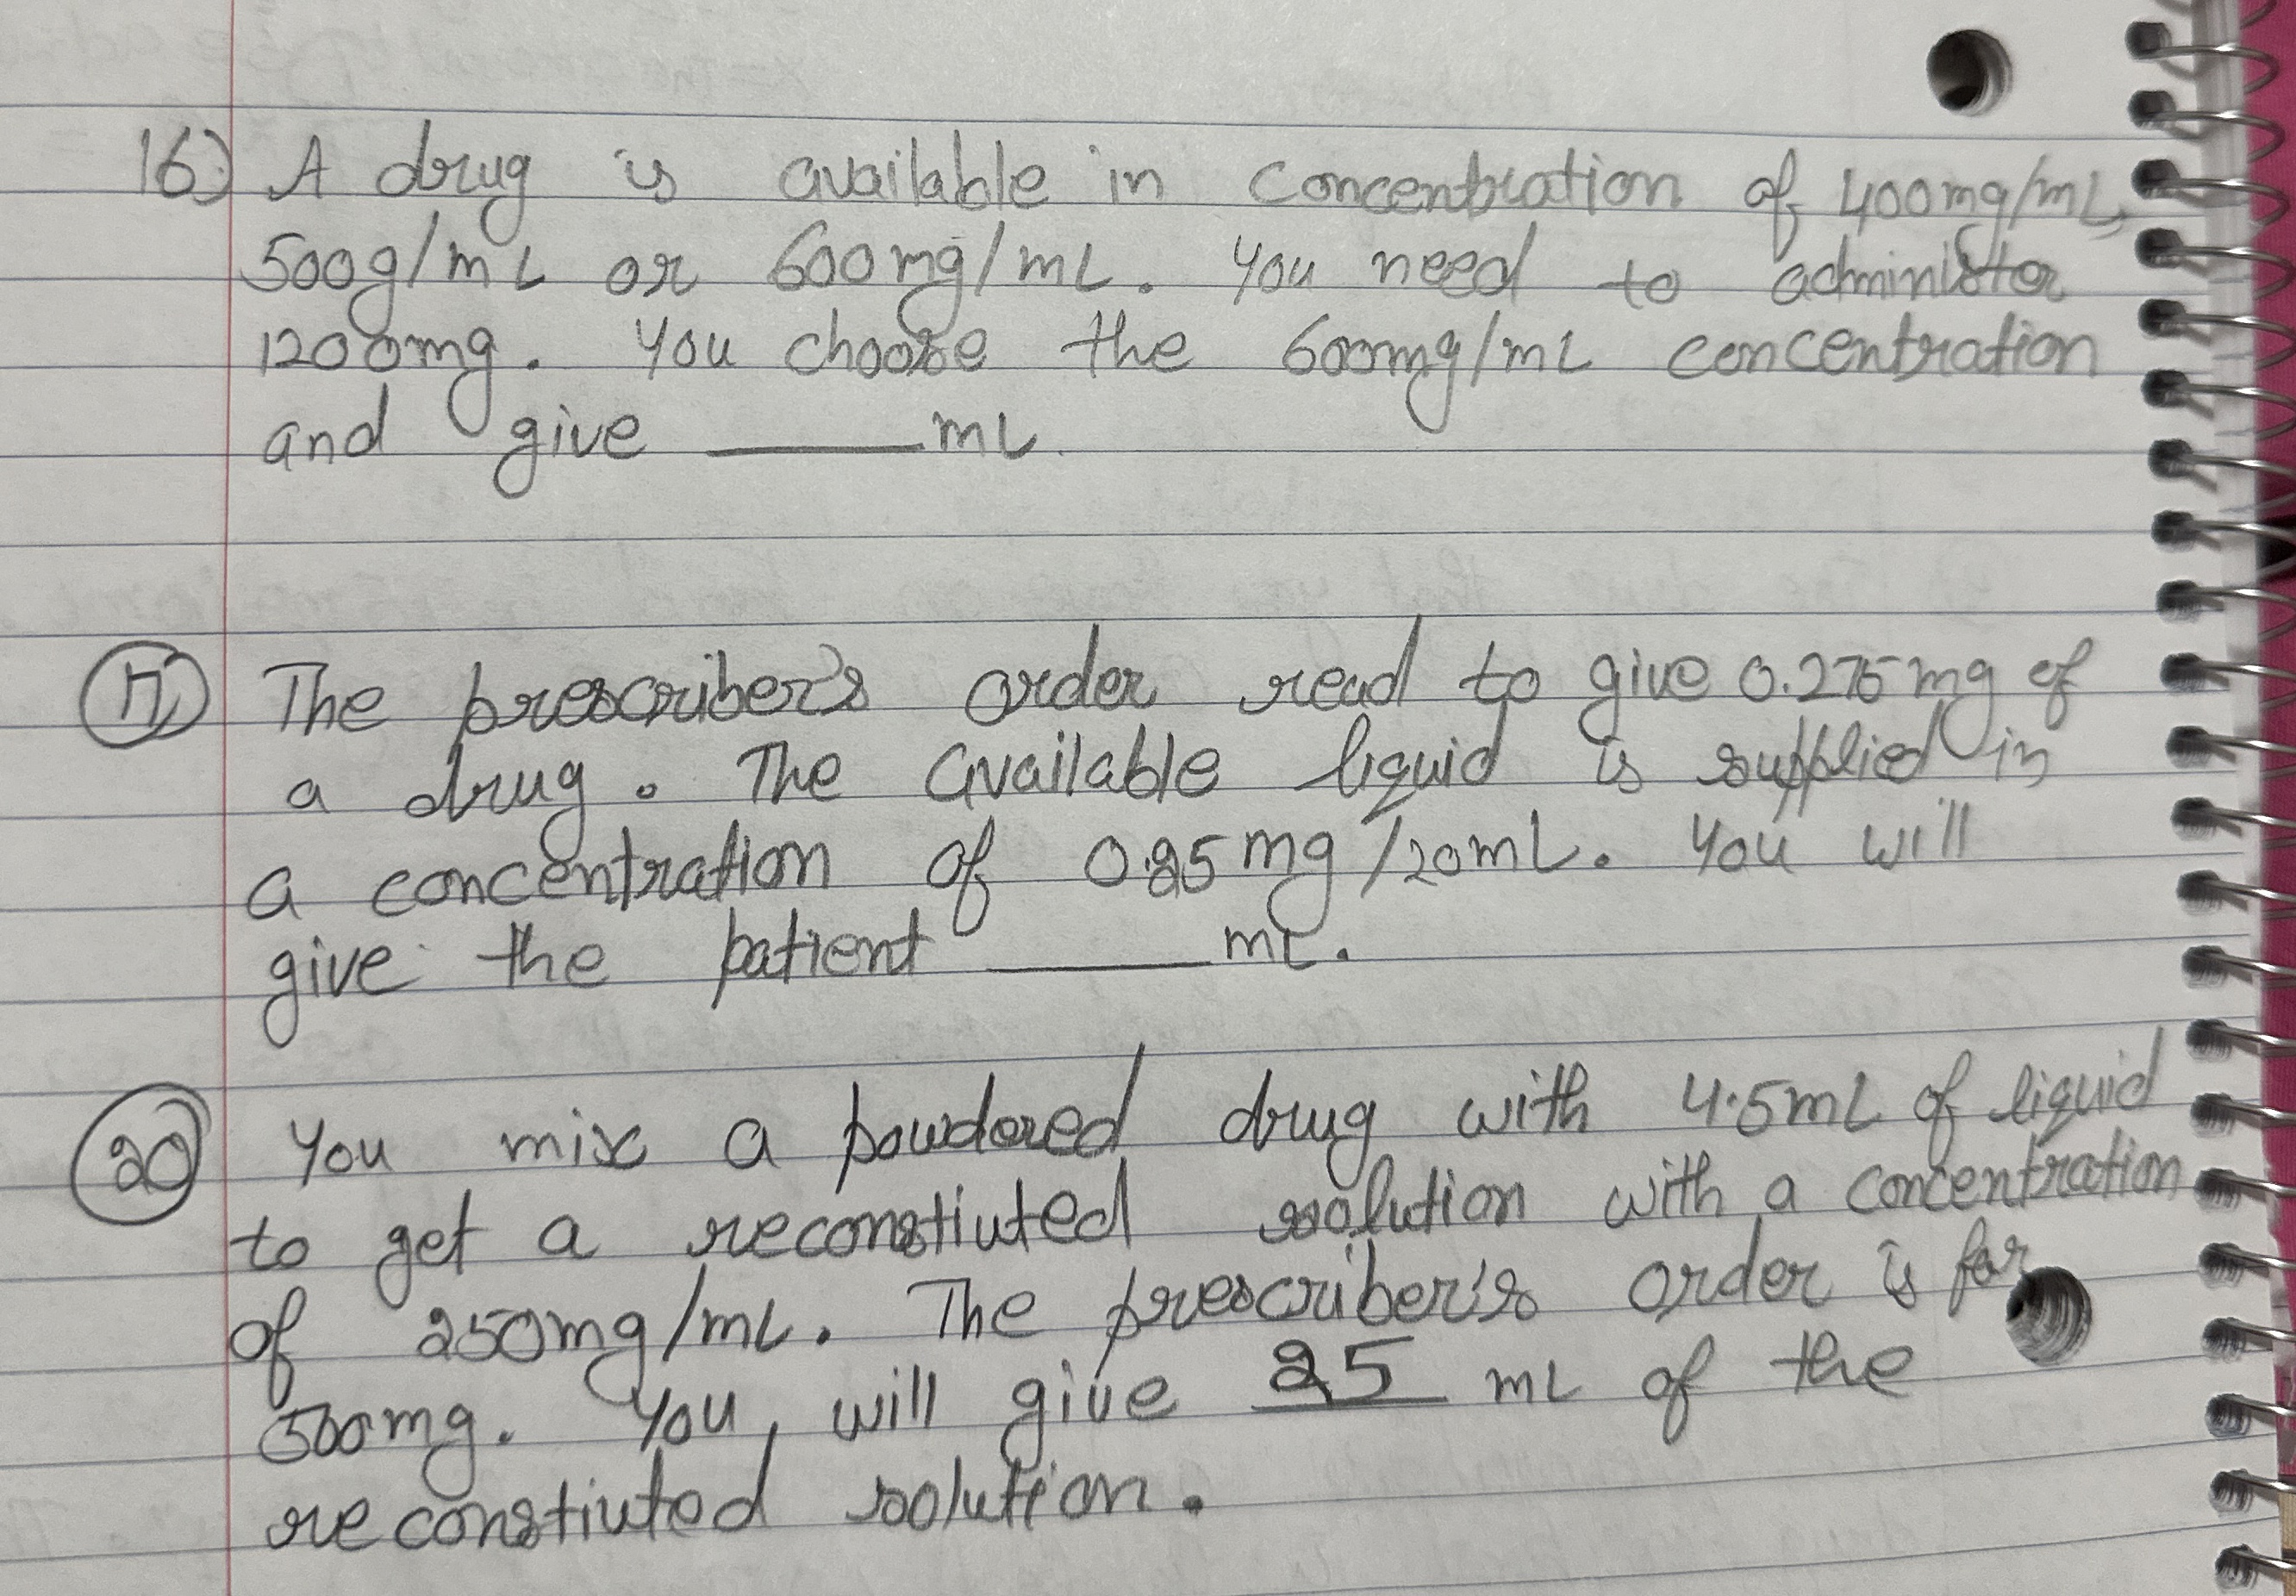 16) A drug is available in concentration of 400mg/mL,
500g/mL or 600mg/mL. You need to administer
1200mg. You choose the 600mg/mL concentration
and give ____ mL.
17) The prescriber's order read to give 0.275mg of
a drug. The available liquid is supplied in
a concentration of 0.25mg/20mL. You will
give the patient ____ mL.
20 You mix a powdered drug with 4.5mL of liquid
to get a reconstiuted solution with a concentration
of 250mg/mL. The prescriber's order is for
500mg. You will give 25 mL of the
reconstiuted solution.